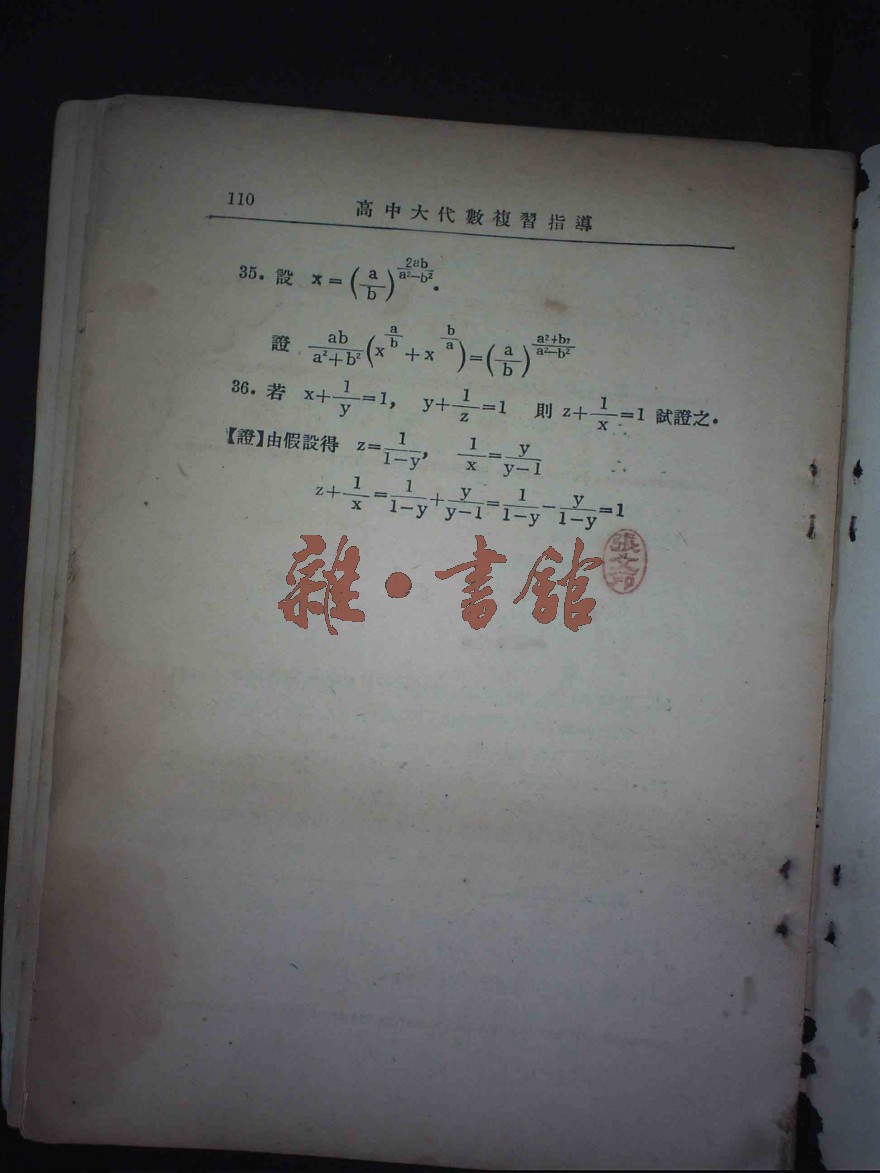 110
高中大代數複習指導
35. 設 x = (a/b)^(2ab/(a²—b²)).
證 ab/(a²+b²) (x^(a/b) + x^(b/a)) = (a/b)^((a²+b²)/(a²—b²))
36. 若 x+1/y=1, y+1/z=1 則 z+1/x=1 試證之.
【證】由假設得 z=1/(1—y), 1/x=y/(y—1)
z+1/x=1/(1—y)+y/(y—1)=1/(1—y)—y/(1—y)=1
雜·書館
張文印